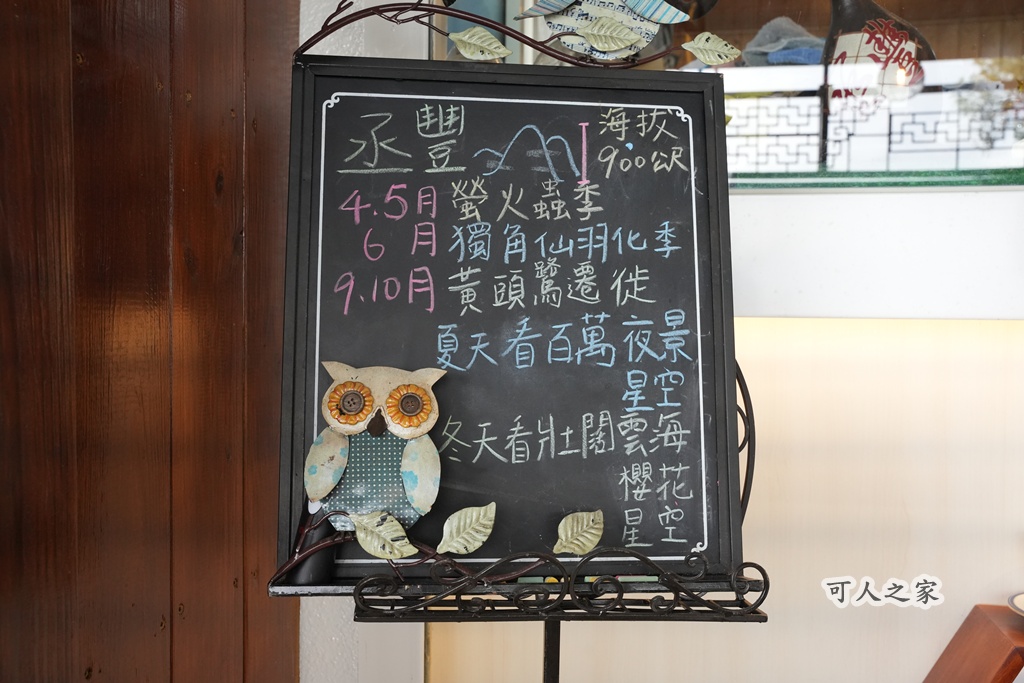 丞豐 海拔
900公尺
4.5月 螢火蟲季
6月 獨角仙羽化季
9.10月 黃頭鷺遷徙
夏天看百萬夜景
星空
冬天看壯闊雲海
櫻花
星空
可人之家